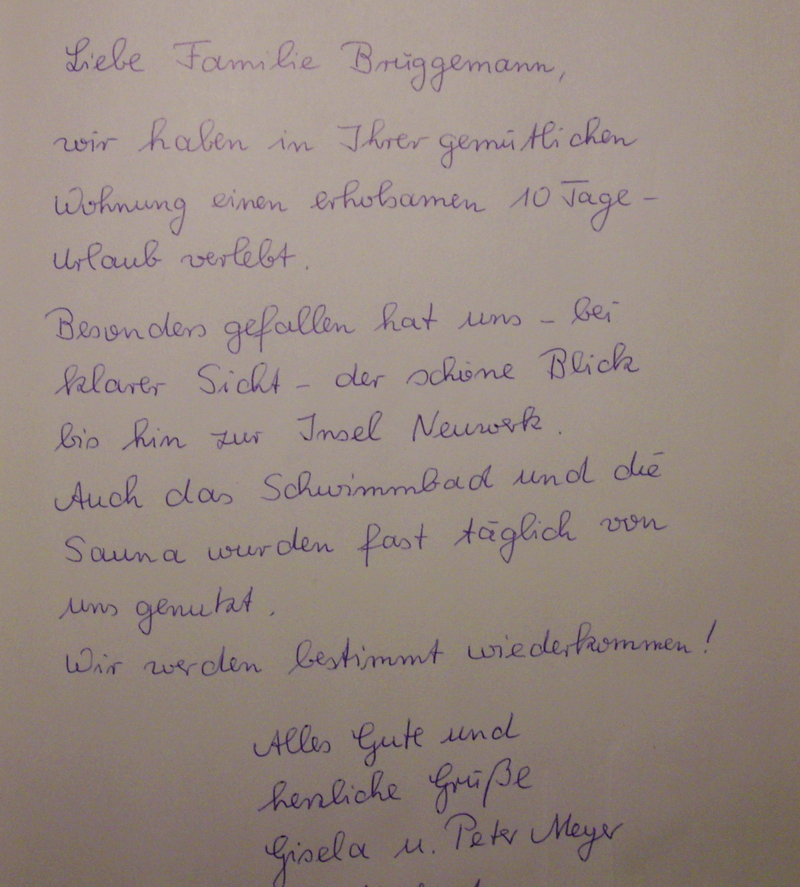 Liebe Familie Brüggemann,
wir haben in Ihrer gemütlichen
Wohnung einen erholsamen 10 Tage -
Urlaub verlebt.
Besonders gefallen hat uns - bei
klarer Sicht - der schöne Blick
bis hin zur Insel Neuwerk.
Auch das Schwimmbad und die
Sauna wurden fast täglich von
uns genutzt.
Wir werden bestimmt wiederkommen!
Alles Gute und
herzliche Grüße
Gisela u. Peter Meyer